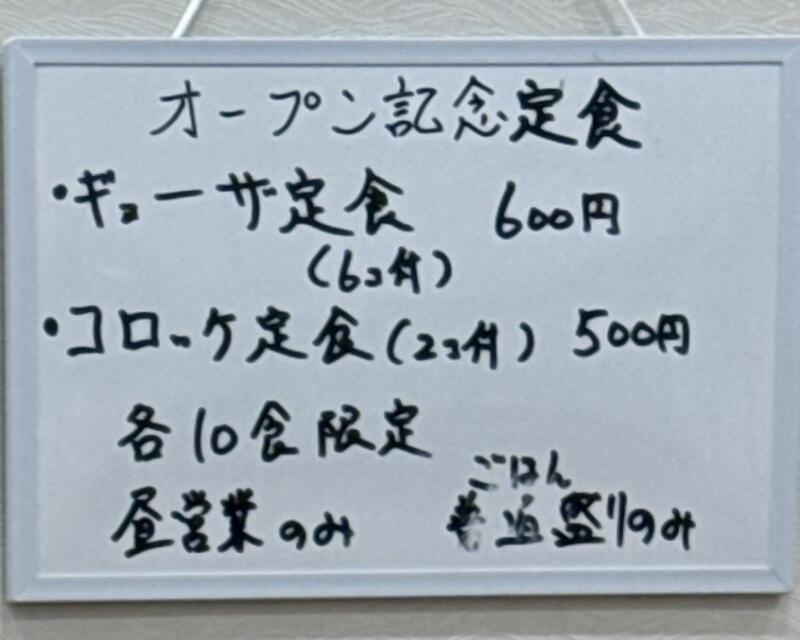 オープン記念定食
・ギョーザ定食 600円
(6コ付)
・コロッケ定食(2コ付) 500円
各10食限定
昼営業のみ
ごはん
普通盛りのみ